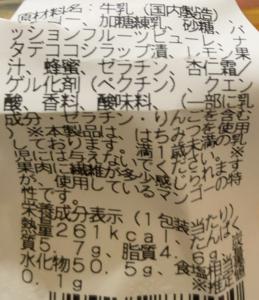 原材料名：牛乳（国内製造）、
ゴー、加糖練乳、砂糖、
ッションフルーツピューレ、パイ
タデココシラップ漬、レモン果
汁、蜂蜜、ゼラチン、杏仁霜／
ゲル化剤（ペクチン）、クエン
酸、香料、酸味料、（一部に乳
成分・ゼラチン・りんごを含む）
※本製品は、はちみつを使用
しております。満1歳未満の乳
児には与えないでください。※
果肉に繊維が多少感じられます
が、使用しているマンゴーの特
性です。
栄養成分表示（1包装当たり）
熱量261kcal、たんぱく
質5.7g、脂質4.6g、炭
水化物50.5g、食塩相当量
0.1g